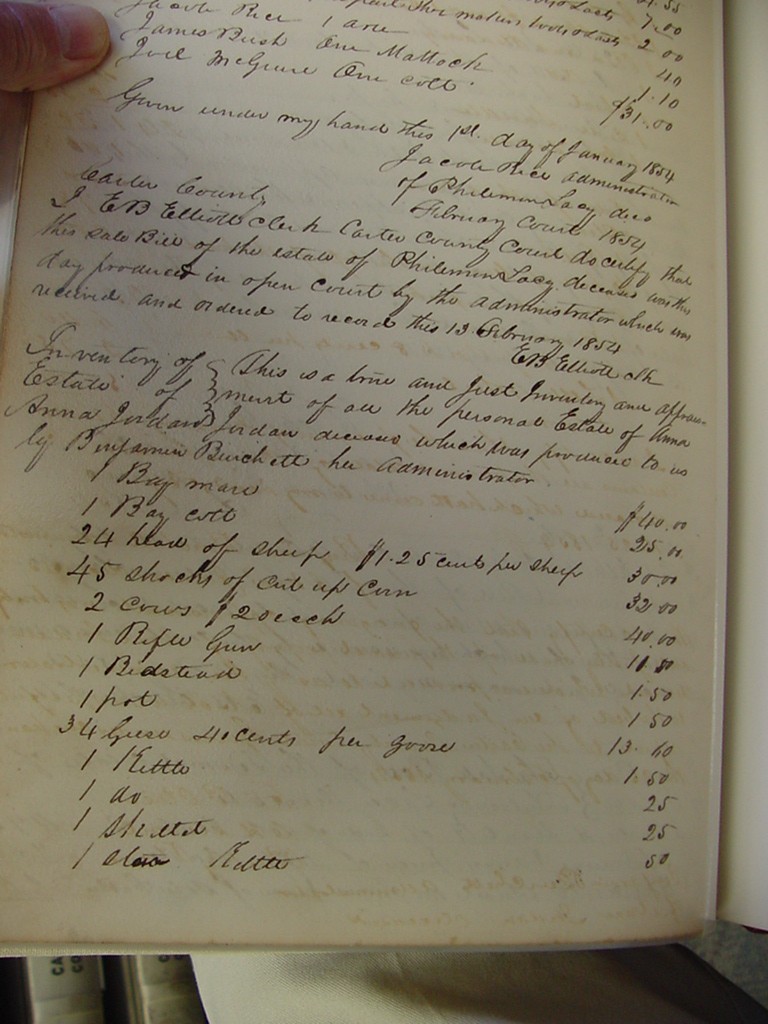 Jacob Rice 1 axe 2.00
James Bush One Mattock 40
Joel McGuire One colt 1.10
$31.00
Given under my hand this 1st. day of January 1854
Jacob Rice administrator
of Philemon Lacy decd
Carter County February Court 1854
I EB Elliott Clerk Carter County Court do certify that
this sale Bill of the estate of Philemon Lacy deceased was this
day produced in open Court by the administrator which was
received and ordered to record this 13 February 1854
EB Elliott clk
Inventory of This is a true and Just Inventory and apprais-
Estate of ment of all the personal Estate of Anna
Anna Jordan Jordan deceased which was produced to us
by Benjamin Burchett her Administrator
1 Bay mare $40.00
1 Bay colt 25.00
24 head of sheep $1.25 cents per sheep 30.00
45 shocks of cut up corn 32.00
2 cows $20 each 40.00
1 Rifle Gun 11.50
1 Bedstead 1.50
1 pot 1 50
34 Geese 40 cents per goose 13.60
1 Kettle 1.50
1 do 25
1 skillet 25
1 Kettle 50